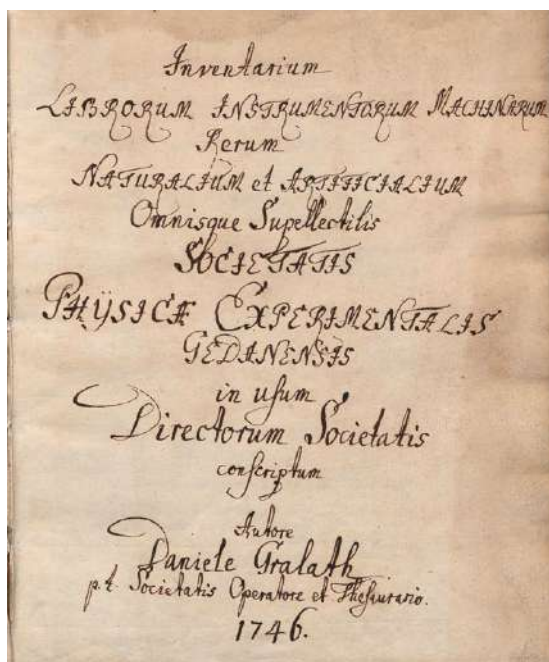 Inventarium
LIBRORUM INSTRUMENTORUM MACHINARUM
Rerum
NATURALIUM et ARTIFICIALIUM
Omnisque Supellectilis
SOCIETATIS
PHŸSICÆ EXPERIMENTALIS
GEDANENSIS
in uſum
Directorum Societatis
conſcriptum
Autore
Daniele Gralath
p. t. Societatis Operatore et Theſaurario.
1746.